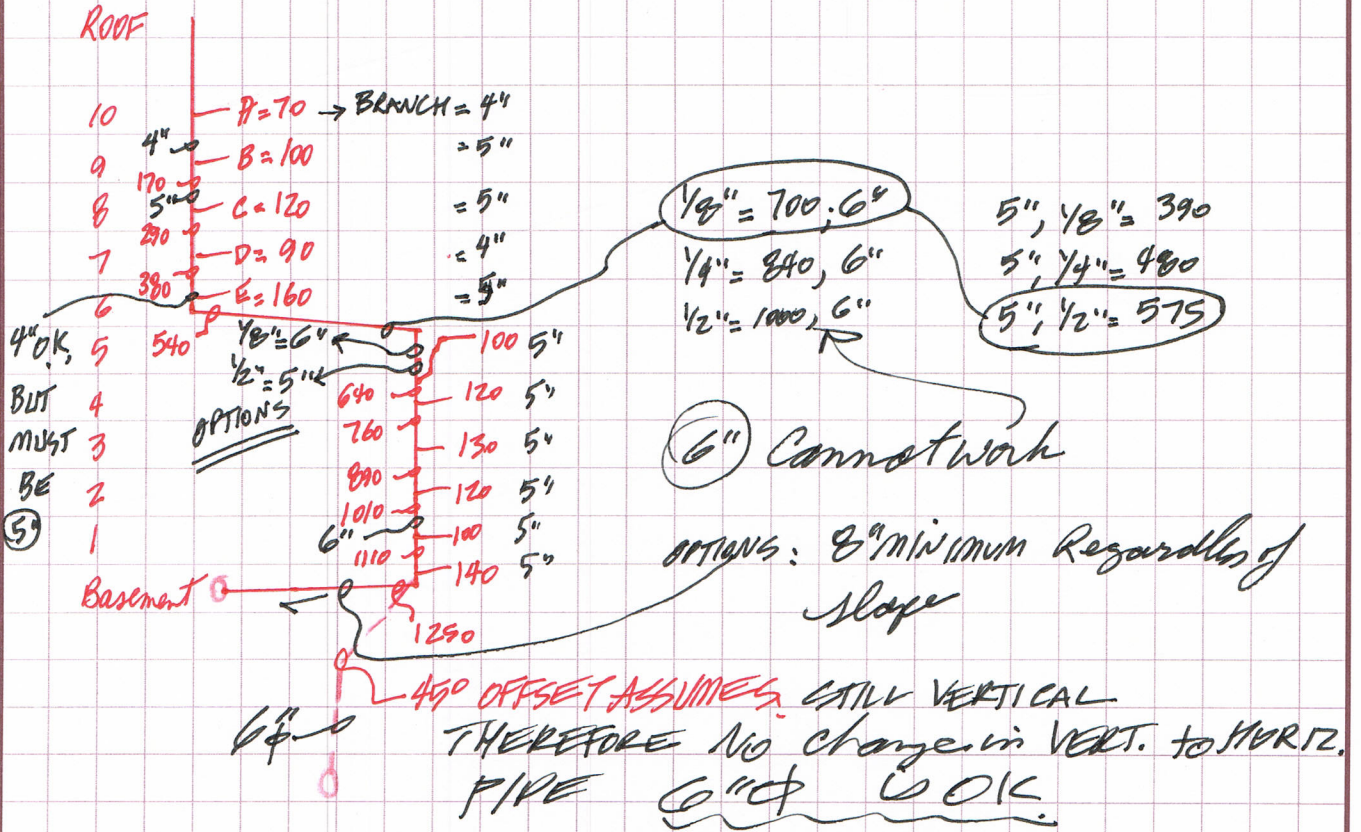 ROOF
10 A=70 → BRANCH = 4"
4"
9 B=100 = 5"
170
8 5" C=120 = 5"
290
7 D=90 = 4"
380
6 E=160 = 5"
4" OK, 5 540
BUT 4
MUST 3
BE 2
5" 1
Basement
1/8"=6"
1/2"=5"
OPTIONS
100 5"
640 120 5"
760
130 5"
890
120 5"
1010
6" 100 5"
1110
140 5"
1250
1/8" = 700, 6"
1/4" = 840, 6"
1/2" = 1000, 6"
5", 1/8" = 390
5", 1/4" = 480
5", 1/2" = 575
6" Cannot work
OPTIONS: 8" MINIMUM Regardless of
slope
45° OFFSET ASSUMES STILL VERTICAL
6"ϕ THEREFORE No Change in VERT. to HORIZ.
PIPE 6"ϕ is OK.